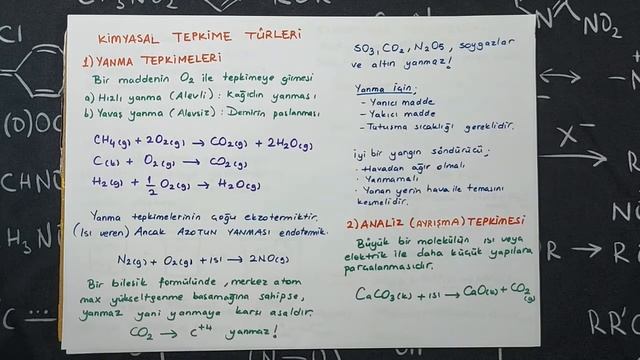 KİMYASAL TEPKİME TÜRLERİ
1) YANMA TEPKİMELERİ
Bir maddenin O₂ ile tepkimeye girmesi
a) Hızlı yanma (Alevli) : Kağıdın yanması
b) Yavaş yanma (Alevsiz) : Demirin paslanması
CH₄(g) + 2O₂(g) → CO₂(g) + 2H₂O(g)
C(k) + O₂(g) → CO₂(g)
H₂(g) + 1/2 O₂(g) → H₂O(g)
Yanma tepkimelerinin çoğu ekzotermiktir.
(Isı veren) Ancak AZOTUN YANMASI endotermik.
N₂(g) + O₂(g) + ısı → 2NO(g)
Bir bileşik formülünde, merkez atom
max yükseltgenme basamağına sahipse,
yanmaz yani yanmaya karşı asaldır.
CO₂ → C⁺⁴ yanmaz!
SO₃, CO₂, N₂O₅, soygazlar
ve altın yanmaz!
Yanma için;
- Yanıcı madde
- Yakıcı madde
- Tutuşma sıcaklığı gereklidir.
İyi bir yangın söndürücü;
· Havadan ağır olmalı
· Yanmamalı
· Yanan yerin hava ile temasını
kesmelidir.
2) ANALİZ (AYRIŞMA) TEPKİMESİ
Büyük bir molekülün ısı veya
elektrik ile daha küçük yapılara
parçalanmasıdır.
CaCO₃(k) + ısı → CaO(k) + CO₂(g)
Cl
(O)OC
CHNO
H₃N
C
NO₂
N
X⁻
R
R → R
RR'C